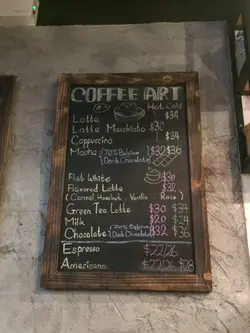 COFFEE ART
Hot Cold
Latte $34
Latte Macchiato $30
Cappuccino $34
Mocha (70% Belgium Dark Chocolate) $32 $36
Flat White $30
Flavored Latte $32
(Caramel, Hazelnut, Vanilla, Rose)
Green Tea Latte $30 $34
Milk $20 $24
Chocolate (70% Belgium Dark Chocolate) $32 $36
Espresso $22/26
Americano $22/26 $28